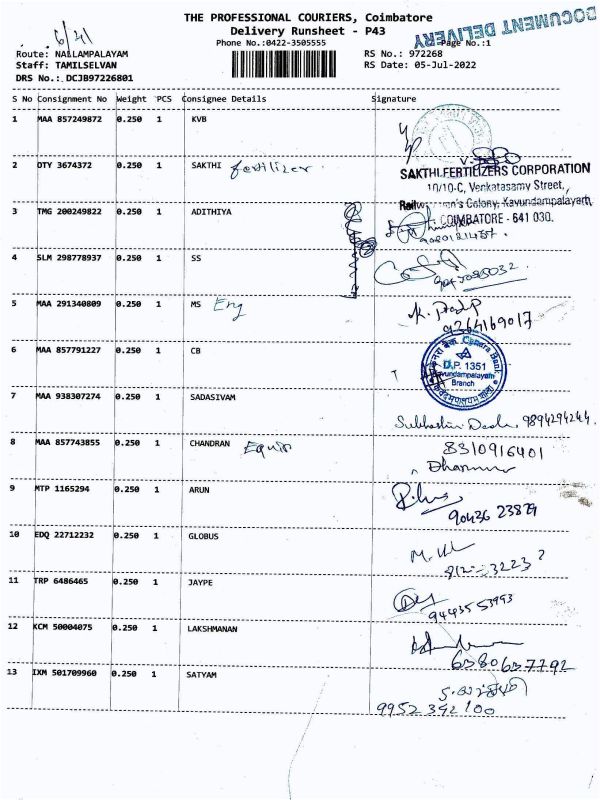 THE PROFESSIONAL COURIERS, Coimbatore
DOCUMENT DELIVERY
Delivery Runsheet - P43
Phone No.:0422-3505555
Page No.:1
Route: NALLAMPALAYAM
RS No.: 972268
Staff: TAMILSELVAN
RS Date: 05-Jul-2022
DRS No.: DCJB97226801
S No Consignment No Weight PCS Consignee Details Signature
1 MAA 857249872 0.250 1 KVB
2 OTY 3674372 0.250 1 SAKTHI fertilizer
SAKTHI FERTILIZERS CORPORATION
10/10-C, Venkatasamy Street,
Colony, Kavundampalayam,
COIMBATORE - 641 030.
3 TMG 200249822 0.250 1 ADITHIYA
4 SLM 298778937 0.250 1 SS
5 MAA 291340809 0.250 1 MS Eng
9364169017
6 MAA 857791227 0.250 1 CB
Canara Bank
D.P. 1351
Kavundampalayam
Branch
7 MAA 938307274 0.250 1 SADASIVAM
9894294244
8 MAA 857743855 0.250 1 CHANDRAN Equip
8310916401
9 MTP 1165294 0.250 1 ARUN
90436 23879
10 EDQ 22712232 0.250 1 GLOBUS
11 TRP 6486465 0.250 1 JAYPE
9443553993
12 KCM 50004075 0.250 1 LAKSHMANAN
6380637792
13 IXM 501709960 0.250 1 SATYAM
9952392100